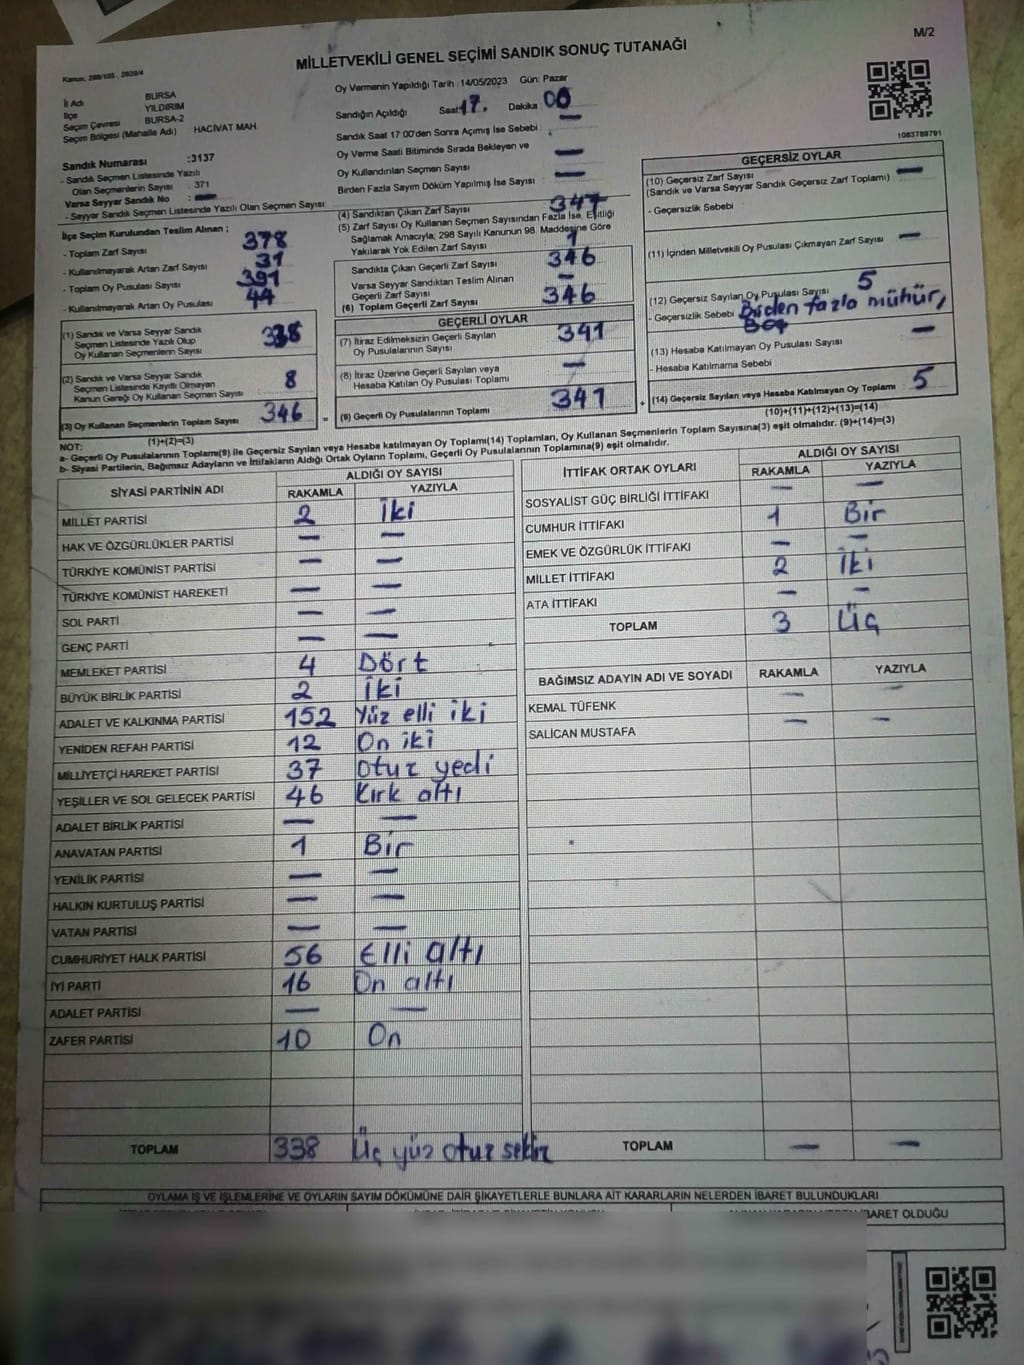 M/2
MİLLETVEKİLİ GENEL SEÇİMİ SANDIK SONUÇ TUTANAĞI
İl Adı BURSA
İlçe YILDIRIM
Seçim Çevresi BURSA-2
Seçim Bölgesi (Mahalle Adı) HACİVAT MAH.
Sandık Numarası :3137
- Sandık Seçmen Listesinde Yazılı
Olan Seçmenlerin Sayısı : 371
Varsa Seyyar Sandık No : —
- Seyyar Sandık Seçmen Listesinde Yazılı Olan Seçmen Sayısı:
İlçe Seçim Kurulundan Teslim Alınan ;
- Toplam Zarf Sayısı 378
- Kullanılmayarak Artan Zarf Sayısı 31
- Toplam Oy Pusulası Sayısı 391
- Kullanılmayarak Artan Oy Pusulası 44
(1) Sandık ve Varsa Seyyar Sandık
Seçmen Listesinde Yazılı Olup
Oy Kullanan Seçmenlerin Sayısı
(2) Sandık ve Varsa Seyyar Sandık
Seçmen Listesinde Kayıtlı Olmayan
Kanun Gereği Oy Kullanan Seçmen Sayısı 8
(3) Oy Kullanan Seçmenlerin Toplam Sayısı 346 =
(1)+(2)=(3)
Oy Vermenin Yapıldığı Tarih : 14/05/2023 Gün: Pazar
Sandığın Açıldığı Saat 17. Dakika : 00
Sandık Saat 17:00'den Sonra Açımış İse Sebebi : —
Oy Verme Saati Bitiminde Sırada Bekleyen ve
Oy Kullandırılan Seçmen Sayısı : —
Birden Fazla Sayım Döküm Yapılmış İse Sayısı : —
(4) Sandıktan Çıkan Zarf Sayısı 347
(5) Zarf Sayısı Oy Kullanan Seçmen Sayısından Fazla İse, Eşitliği
Sağlamak Amacıyla; 298 Sayılı Kanunun 98. Maddesine Göre
Yakılarak Yok Edilen Zarf Sayısı : 1
Sandıkta Çıkan Geçerli Zarf Sayısı 346
Varsa Seyyar Sandıktan Teslim Alınan
Geçerli Zarf Sayısı —
(6) Toplam Geçerli Zarf Sayısı 346
GEÇERLİ OYLAR
(7) İtiraz Edilmeksizin Geçerli Sayılan
Oy Pusulalarının Sayısı 341
(8) İtiraz Üzerine Geçerli Sayılan veya
Hesaba Katılan Oy Pusulası Toplamı —
(9) Geçerli Oy Pusulalarının Toplamı 341 +
1083788791
GEÇERSİZ OYLAR
(10) Geçersiz Zarf Sayısı : —
(Sandık ve Varsa Seyyar Sandık Geçersiz Zarf Toplamı)
- Geçersizlik Sebebi :
(11) İçinden Milletvekili Oy Pusulası Çıkmayan Zarf Sayısı : —
(12) Geçersiz Sayılan Oy Pusulası Sayısı : 5
- Geçersizlik Sebebi : Birden fazla mühür,
Boş
(13) Hesaba Katılmayan Oy Pusulası Sayısı : —
- Hesaba Katılmama Sebebi :
(14) Geçersiz Sayılan veya Hesaba Katılmayan Oy Toplamı : 5
(10)+(11)+(12)+(13)=(14)
NOT:
a- Geçerli Oy Pusulalarının Toplamı(9) ile Geçersiz Sayılan veya Hesaba katılmayan Oy Toplamı(14) Toplamları, Oy Kullanan Seçmenlerin Toplam Sayısına(3) eşit olmalıdır. (9)+(14)=(3)
b- Siyasi Partilerin, Bağımsız Adayların ve İttifakların Aldığı Ortak Oyların Toplamı, Geçerli Oy Pusulalarının Toplamına(9) eşit olmalıdır.
SİYASİ PARTİNİN ADI ALDIĞI OY SAYISI
RAKAMLA YAZIYLA
MİLLET PARTİSİ 2 İki
HAK VE ÖZGÜRLÜKLER PARTİSİ — —
TÜRKİYE KOMÜNİST PARTİSİ — —
TÜRKİYE KOMÜNİST HAREKETİ — —
SOL PARTİ — —
GENÇ PARTİ — —
MEMLEKET PARTİSİ 4 Dört
BÜYÜK BİRLİK PARTİSİ 2 İki
ADALET VE KALKINMA PARTİSİ 152 Yüz elli iki
YENİDEN REFAH PARTİSİ 12 On iki
MİLLİYETÇİ HAREKET PARTİSİ 37 Otuz yedi
YEŞİLLER VE SOL GELECEK PARTİSİ 46 Kırk altı
ADALET BİRLİK PARTİSİ — —
ANAVATAN PARTİSİ 1 Bir
YENİLİK PARTİSİ — —
HALKIN KURTULUŞ PARTİSİ — —
VATAN PARTİSİ — —
CUMHURİYET HALK PARTİSİ 56 Elli altı
İYİ PARTİ 16 On altı
ADALET PARTİSİ — —
ZAFER PARTİSİ 10 On
TOPLAM 338 Üç yüz otuz sekiz
İTTİFAK ORTAK OYLARI ALDIĞI OY SAYISI
RAKAMLA YAZIYLA
SOSYALİST GÜÇ BİRLİĞİ İTTİFAKI — —
CUMHUR İTTİFAKI 1 Bir
EMEK VE ÖZGÜRLÜK İTTİFAKI — —
MİLLET İTTİFAKI 2 İki
ATA İTTİFAKI — —
TOPLAM 3 Üç
BAĞIMSIZ ADAYIN ADI VE SOYADI RAKAMLA YAZIYLA
KEMAL TÜFENK — —
SALİCAN MUSTAFA — —
TOPLAM — —
OYLAMA İŞ VE İŞLEMLERİNE VE OYLARIN SAYIM DÖKÜMÜNE DAİR ŞİKAYETLERLE BUNLARA AİT KARARLARIN NELERDEN İBARET BULUNDUKLARI
OLDUĞU